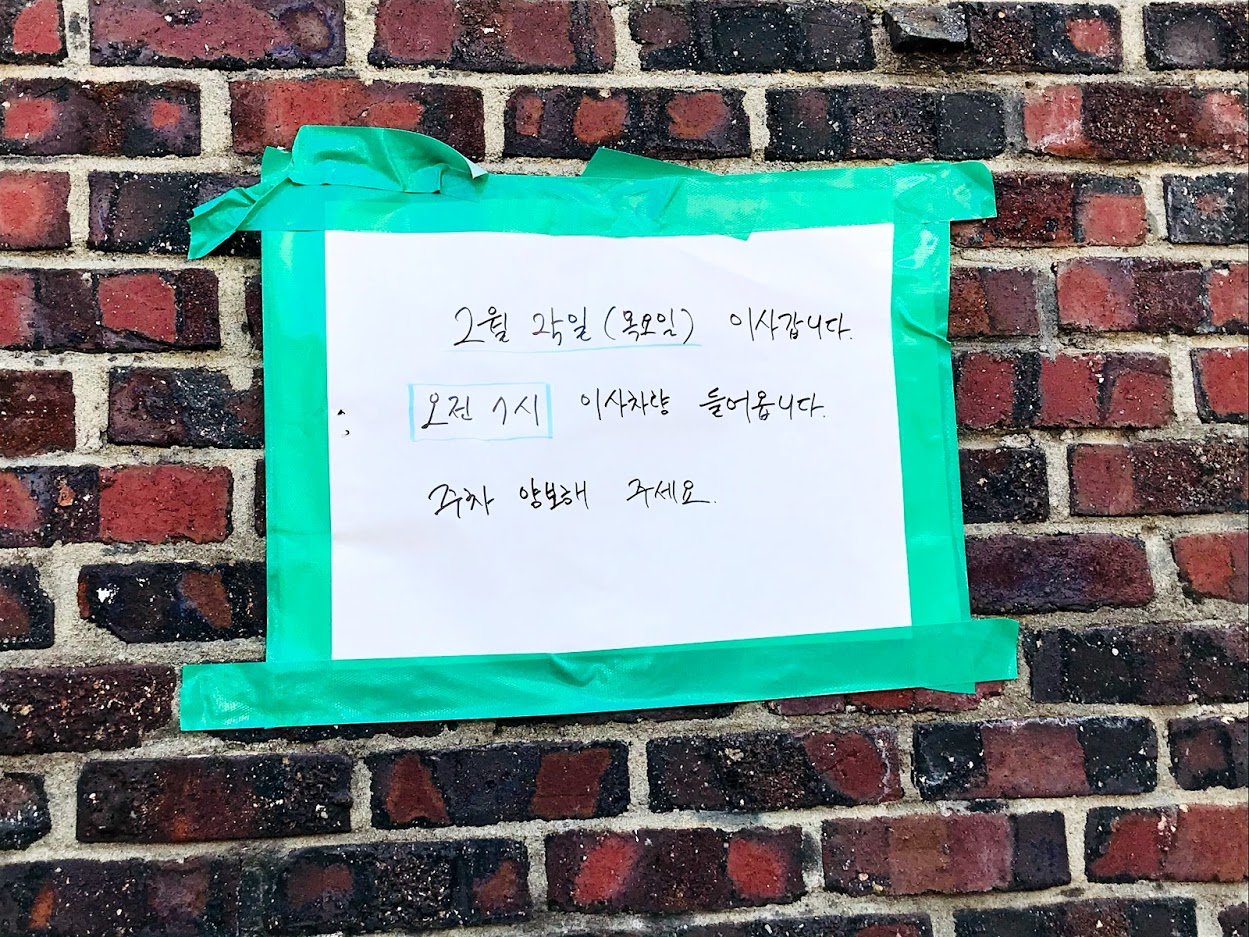 2월 (목요일) 이사갑니다.
오전 7시 이사차량 들어옵니다.
주차 양보해 주세요.